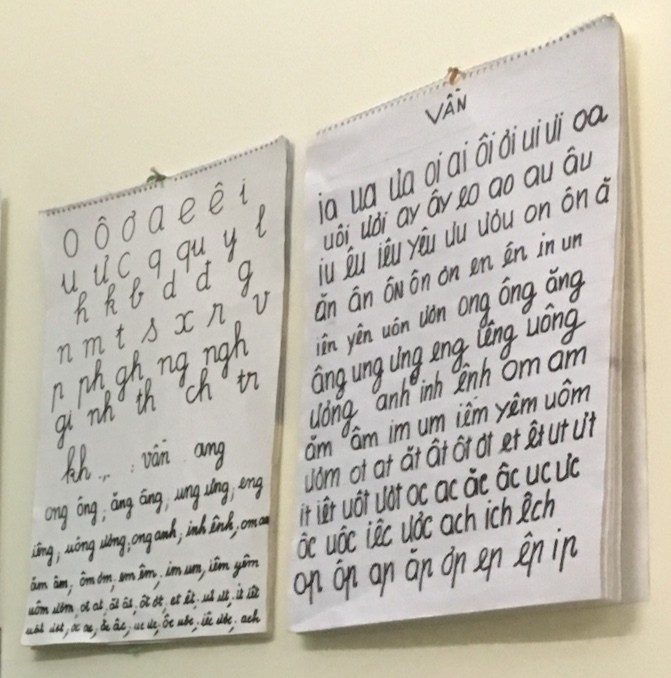 o ô ơ a e ê i
u ư c q qu y l
h k b d đ g
n m t s x r v
p ph gh ng ngh
gi nh th ch tr
kh... : vần ang
ong ông, ăng âng, ung ưng, eng
iêng, uông ương, ong anh, inh ênh, om am
ăm âm, ôm ơm, em êm, im um, iêm yêm
uôm ươm, ot at, ăt ât, ôt ơt, et êt, ut ưt, it iêt
uôt ươt, oc ac, ăc âc, uc ưc, ôc uôc, iêc ươc, ach
VẦN
ia ua ưa oi ai ôi ơi ui ưi oa
uôi ươi ay ây eo ao au âu
iu êu iêu yêu ưu ươu on ôn ă
ăn ân ôn ôn ơn en ên in un
iên yên uôn ươn ong ông ăng
âng ung ưng eng iêng uông
ương anh inh ênh om am
ăm âm im um iêm yêm uôm
ươm ot at ăt ât ôt ơt et êt ut ưt
it iêt uôt ươt oc ac ăc âc uc ưc
ôc uôc iêc ươc ach ich êch
op ôp ap ăp ơp ep êp ip